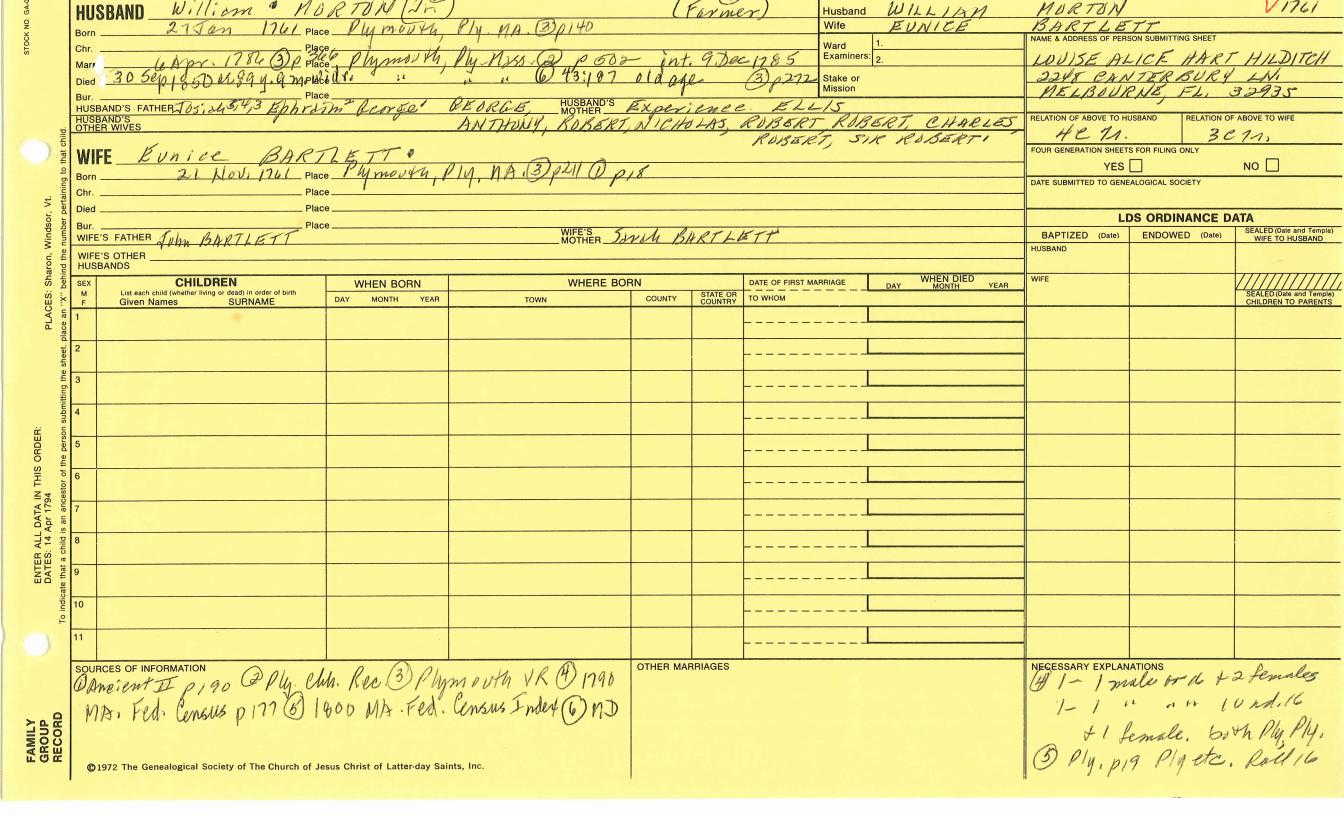 STOCK NO. GA-
HUSBAND William MORTON (Jr.) (Farmer)
Born 27 Jan 1761 Place Plymouth, Ply. MA. ③ p140
Chr. Place
Marr 6 Apr. 1786 ③ p 266 Place Plymouth, Ply. Mass. ② p 502 int. 9 Dec 1785
Died 30 Sep 1850 89 y. 9 m Place " " " ⑥ 43:197 old age ③ p272
Bur. Place
HUSBAND'S FATHER Josiah 5,4,3 Ephraim 2 George 1 GEORGE, HUSBAND'S MOTHER Experience ELLIS
HUSBAND'S OTHER WIVES ANTHONY, ROBERT, NICHOLAS, ROBERT ROBERT, CHARLES,
ROBERT, SIR ROBERT
WIFE Eunice BARTLETT
Born 21 Nov. 1761 Place Plymouth, Ply, MA. ③ p211 ① p18
Chr. Place
Died Place
Bur. Place
WIFE'S FATHER John BARTLETT WIFE'S MOTHER Sarah BARTLETT
WIFE'S OTHER HUSBANDS
Husband WILLIAM MORTON V 1761
Wife EUNICE BARTLETT
Ward Examiners: 1. 2.
Stake or Mission
NAME & ADDRESS OF PERSON SUBMITTING SHEET
LOUISE ALICE HART HILDITCH
2248 CANTERBURY LN.
MELBOURNE, FL. 32935
RELATION OF ABOVE TO HUSBAND RELATION OF ABOVE TO WIFE
4C 7r. 3C 7r.
FOUR GENERATION SHEETS FOR FILING ONLY
YES NO
DATE SUBMITTED TO GENEALOGICAL SOCIETY
LDS ORDINANCE DATA
BAPTIZED (Date) ENDOWED (Date) SEALED (Date and Temple) WIFE TO HUSBAND
HUSBAND
WIFE
SEALED (Date and Temple) CHILDREN TO PARENTS
SEX M F
CHILDREN
List each child (whether living or dead) in order of birth
Given Names SURNAME
WHEN BORN
DAY MONTH YEAR
WHERE BORN
TOWN COUNTY STATE OR COUNTRY
DATE OF FIRST MARRIAGE
TO WHOM
WHEN DIED
DAY MONTH YEAR
1
2
3
4
5
6
7
8
9
10
11
SOURCES OF INFORMATION
① Ancient II p190 ② Ply. Chh. Rec. ③ Plymouth VR ④ 1790
MA. Fed. Census p177 ⑤ 1800 MA. Fed. Census Index ⑥ MD
©1972 The Genealogical Society of The Church of Jesus Christ of Latter-day Saints, Inc.
OTHER MARRIAGES
NECESSARY EXPLANATIONS
④ 1- 1 male + 2 females
1- 1 " " " 1 ud. 16
+ 1 female. both Ply, Ply.
⑤ Ply. p19 Ply etc. Roll 16
PLACES: Sharon, Windsor, Vt.
ENTER ALL DATA IN THIS ORDER:
DATES: 14 Apr 1794
To indicate that a child is an ancestor of the person submitting the sheet, place an "X" behind the number pertaining to that child.
FAMILY GROUP RECORD